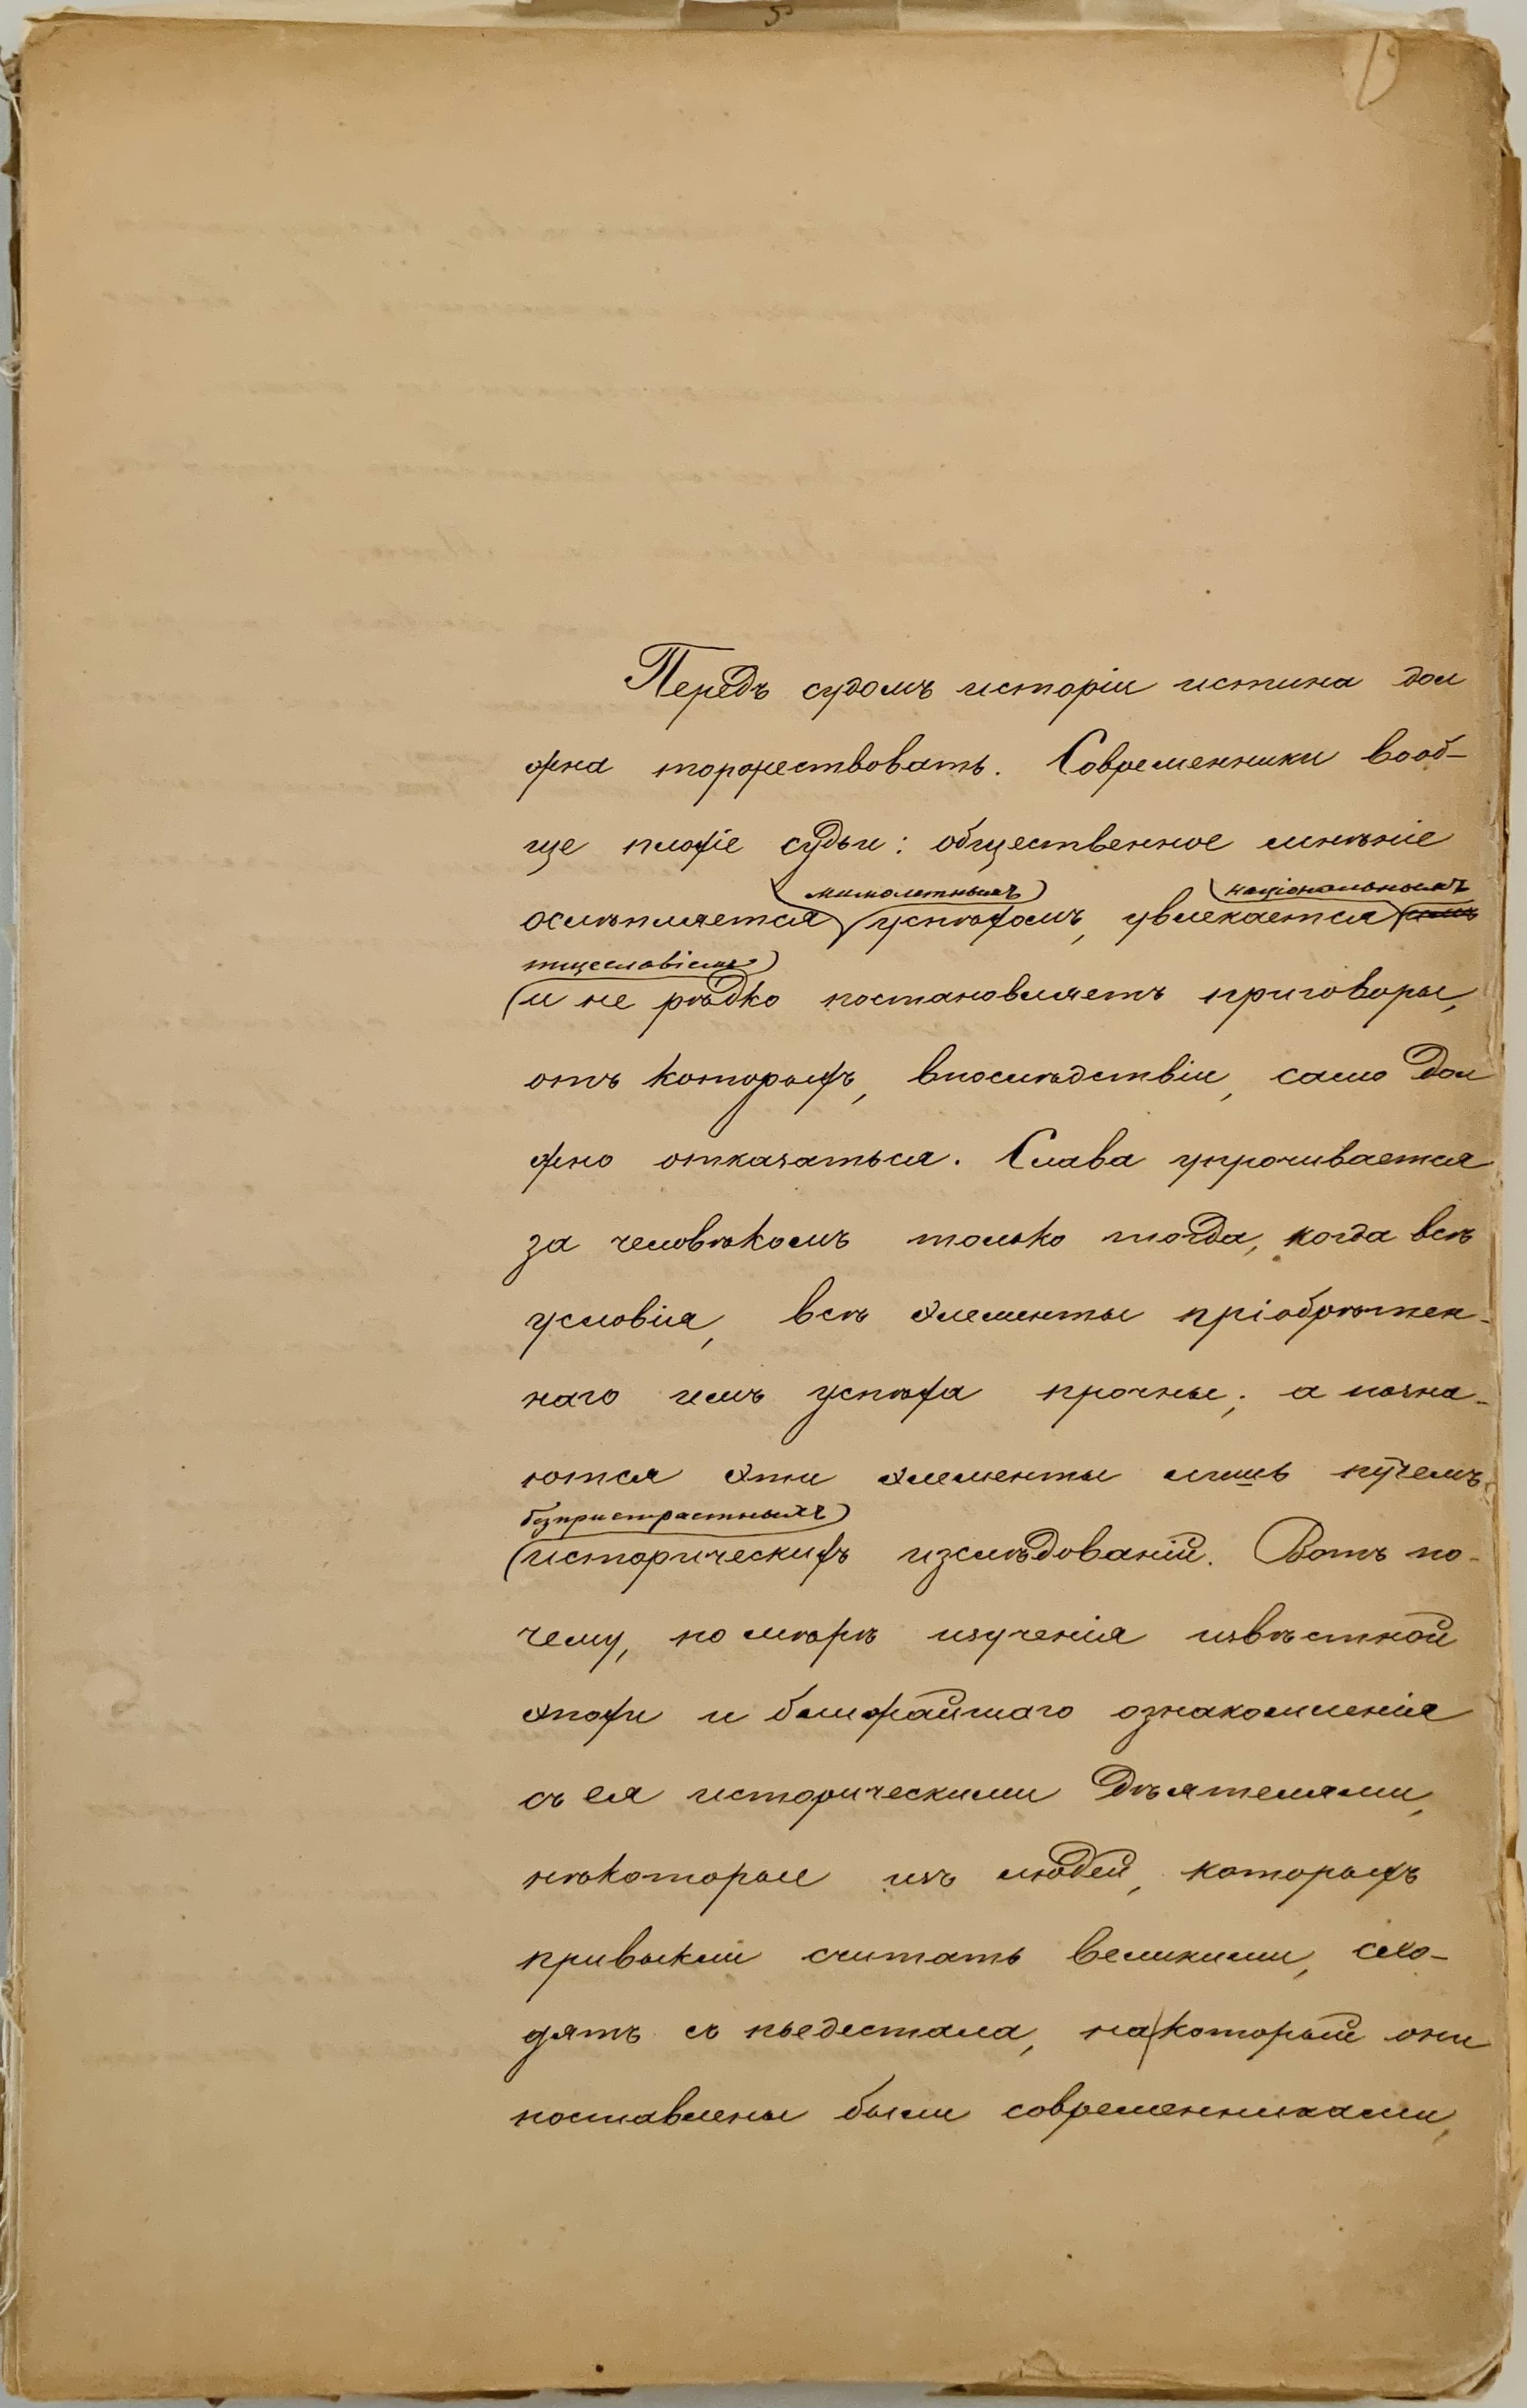 5
Передъ судомъ исторіи истина дол
жна торжествовать. Современники вооб-
ще плохіе судьи: общественное мнѣніе
мимолетнымъ національнымъ
ослѣпляется успѣхомъ, увлекается
тщеславіемъ
и не рѣдко постановляетъ приговоры,
отъ которыхъ, впослѣдствіи, само дол
жно отказаться. Слава упрочивается
за человѣкомъ только тогда, когда всѣ
условія, всѣ элементы пріобрѣтен-
наго имъ успѣха прочны; а позна-
ются эти элементы лишь путемъ
безпристрастныхъ
историческихъ изслѣдованій. Вотъ по-
чему, по мѣрѣ изученія извѣстной
эпохи и ближайшаго ознакомленія
съ ея историческими дѣятелями,
нѣкоторые изъ людей, которыхъ
привыкли считать великими, схо-
дятъ съ пьедестала, на который они
поставлены были современниками,